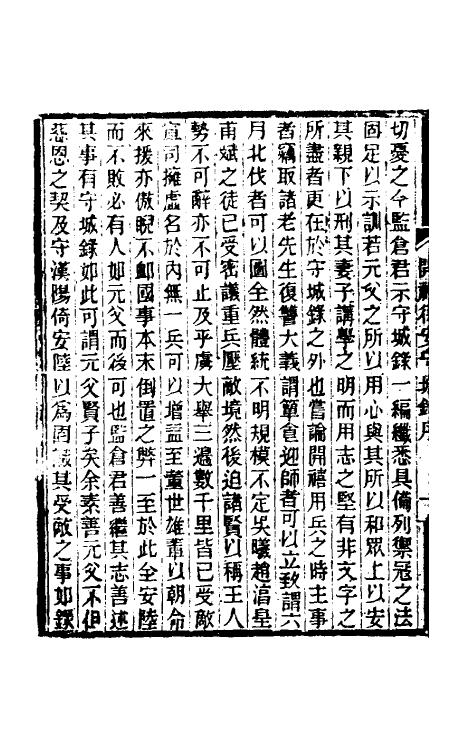 切憂之今監倉君示守城錄一編纖悉具備列禦冦之法
固足以示訓若元父之所以用心與其所以和眾上以安
其親下以刑其妻子講學之明而用志之堅有非文字之
所盡者更在於守城錄之外也嘗論開禧用兵之時主事
者竊取諸老先生復讐大義謂簞食迎師者可以立致謂六
月北伐者可以圖全然體統不明規模不定吳曦趙湻皇
甫斌之徒已受密議重兵壓敵境然後迫諸賢以稱王人
勢不可辭亦不可止及乎虜大舉三邉數千里皆已受敵
宣司擁虛名於內無一兵可以增益至董世雄輩以朝命
來援亦傲睨不䘏國事本末倒置之弊一至於此全安陸
而不敗必有人如元父而後可也監倉君善繼其志善述
其事有守城錄如此可謂元父賢子矣余素善元父不但
丞恩之契及守漢陽倚安陸以爲固其受敵之事如錄
開禧德安守城錄序